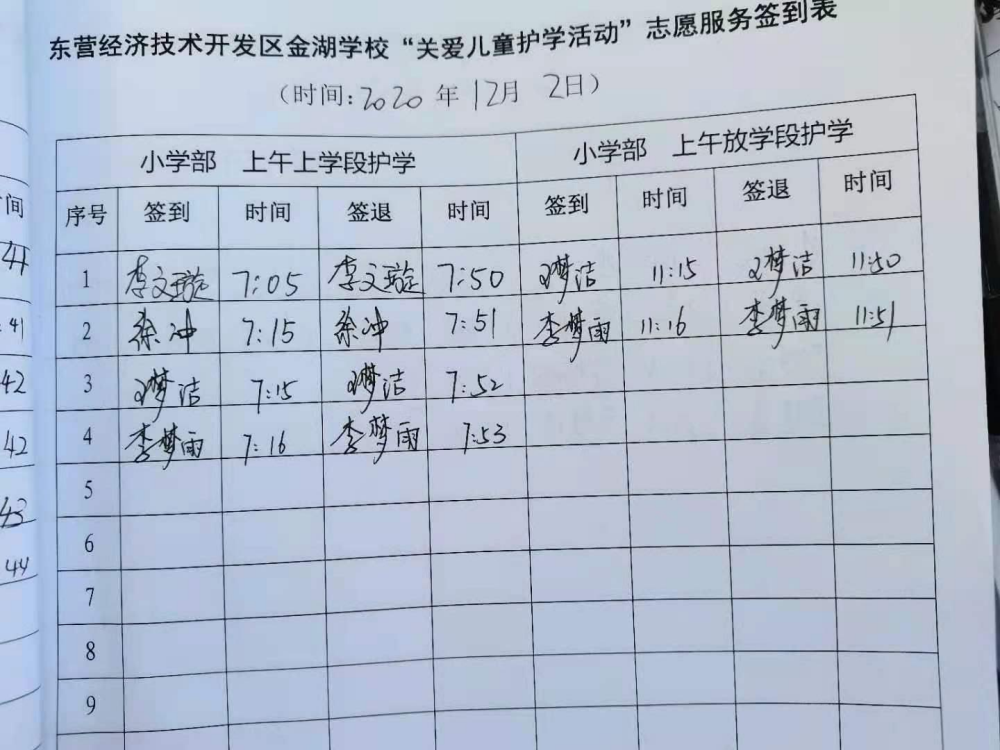 东营经济技术开发区金湖学校“关爱儿童护学活动”志愿服务签到表
（时间：2020年12月2日）
小学部 上午上学段护学 小学部 上午放学段护学
序号 签到 时间 签退 时间 签到 时间 签退 时间
1 李文璇 7:05 李文璇 7:50 梦洁 11:15 梦洁 11:50
2 徐冲 7:15 徐冲 7:51 李梦雨 11:16 李梦雨 11:51
3 梦洁 7:15 梦洁 7:52
4 李梦雨 7:16 李梦雨 7:53
5
6
7
8
9
间
41
42
42
43
44